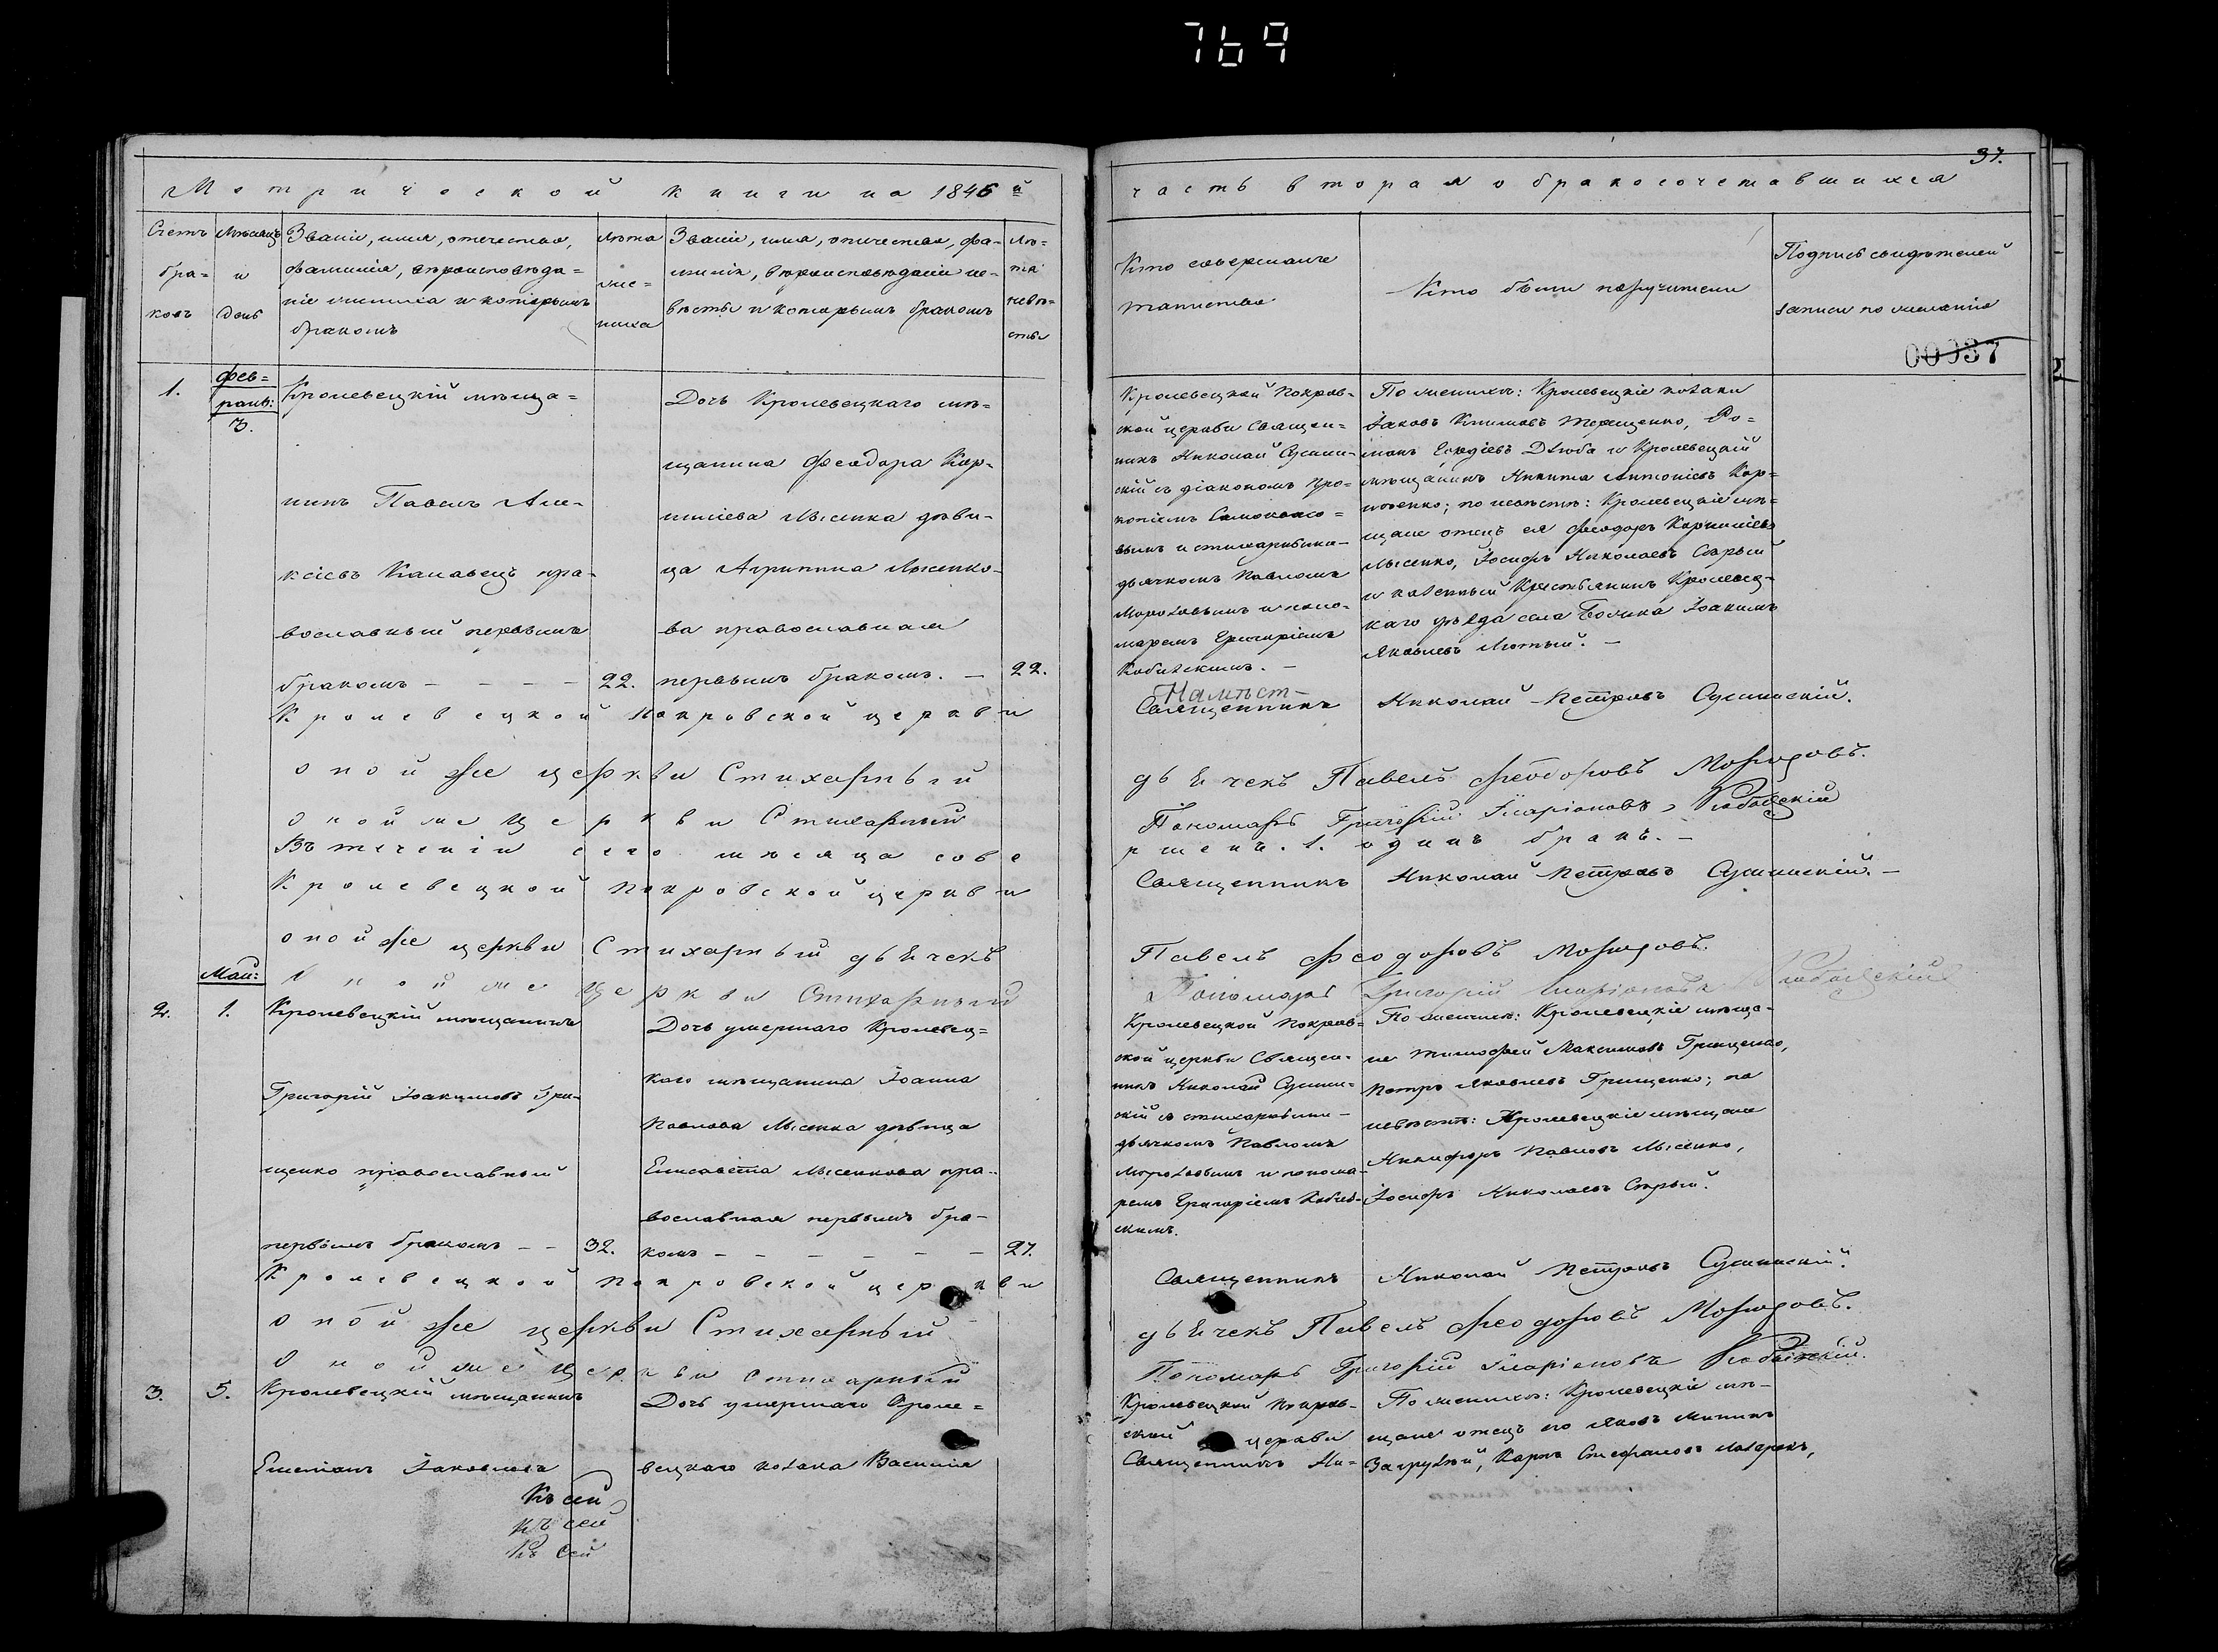 769
37.
Метрической книги на 1846й
часть вторая о бракосочетавшихся
Счетъ
бра=
ковъ
Мѣсяцъ
и
день
Званіе, имя, отечество,
фамилія, вѣроисповѣда=
ніе жениха и которымъ
бракомъ
лѣта
же=
ниха
Званіе, имя, отечество, фа=
милія, вѣроисповѣданіе не=
вѣсты и которымъ бракомъ
лѣ=
та
невѣ=
сты
Кто совершалъ
таинство
Кто были поручители
Подпись свидѣтелей
записи по желанію
00037
1.
фев=
раль:
3.
Кролевецкій мѣща=
нинъ Павелъ Але-
ксіевъ Канавецъ пра-
вославный первымъ
бракомъ
22.
Дочь Кролевецкаго мѣ-
щанина Феодора Кор-
нилієва Лысенка дѣви-
ца Агрипина Лысенко-
ва православная
первымъ бракомъ. —
22.
Кролевецкой Покров-
ской церкви Священ-
никъ Николай Сушин-
скій съ діакономъ Про-
копіемъ
вымъ и стихарнымъ
дьячкомъ Павломъ
Морозовымъ и поно-
маремъ Григоріемъ
По женихѣ: Кролевецкіе козаки
Іаковъ Климовъ Терещенко, Ро=
манъ Дзюба и Кролевецкій
мѣщанинъ Никита Антоніевъ Кор-
ніенко; по невѣстѣ: Кролевецкіе мѣ-
щане отецъ ея Феодоръ Корниліевъ
Лысенко, Іосифъ Николаевъ Старый
и казенный крестьянинъ Кролевец-
каго уѣзда села Іоакимъ
Яковлевъ Лютый. —
Намѣст-
Кролевецкой Покровской церкви Священникъ Николай Петровъ Сушинскій.
оной же церкви Стихарный дьячекъ Павелъ Феодоровъ Морозовъ.
Оной же церкви Стихарный Пономарь Григорій Иларіоновъ
Въ теченіи сего мѣсяца совершенъ. 1. одинъ бракъ. —
Кролевецкой Покровской церкви Священникъ Николай Петровъ Сушинскій. —
оной же церкви Стихарный дьячекъ Павелъ Феодоровъ Морозовъ.
Оной же церкви Стихарный Пономарь Григорій Иларіоновъ
Май:
2.
1.
Кролевецкій мѣщанинъ
Григорій Іоакимовъ Гри-
щенко православный
первымъ бракомъ — —
32.
Дочь умершаго Кролевец=
каго мѣщанина Іоанна
Павлова Лысенка дѣвица
Елисавета Лысенкова пра-
вославная первымъ бра-
комъ
27.
Кролевецкой Покров=
ской церкви Священ-
никъ Николай Сушин=
скій съ стихарнымъ
дьячкомъ Павломъ
Морозовымъ и понома-
ремъ Григоріемъ
скимъ.
По женихѣ: Кролевецкіе мѣща-
не Тимофей Максимовъ Грищенко,
Петръ Яковлевъ Грищенко; по
невѣстѣ: Кролевецкіе мѣщане
Никифоръ Павловъ Лысенко,
Іосифъ Николаевъ Старый.
Кролевецкой Покровской церкви Священникъ Николай Петровъ Сушинскій.
оной же церкви Стихарный дьячекъ Павелъ Феодоровъ Морозовъ.
Оной же церкви Стихарный Пономарь Григорій Иларіоновъ
3.
5.
Кролевецкій мѣщанинъ
Емеліанъ Іаковлевъ
Дочь умершаго Кроле=
вецкаго козака Василія
Кролевецкой Покров-
ской церкви
Священникъ Ни=
По женихѣ: Кролевецкіе мѣ-
щане отецъ его Яковъ Мининъ
Карпъ Стефановъ
Къ сей
Къ сей
Къ сей